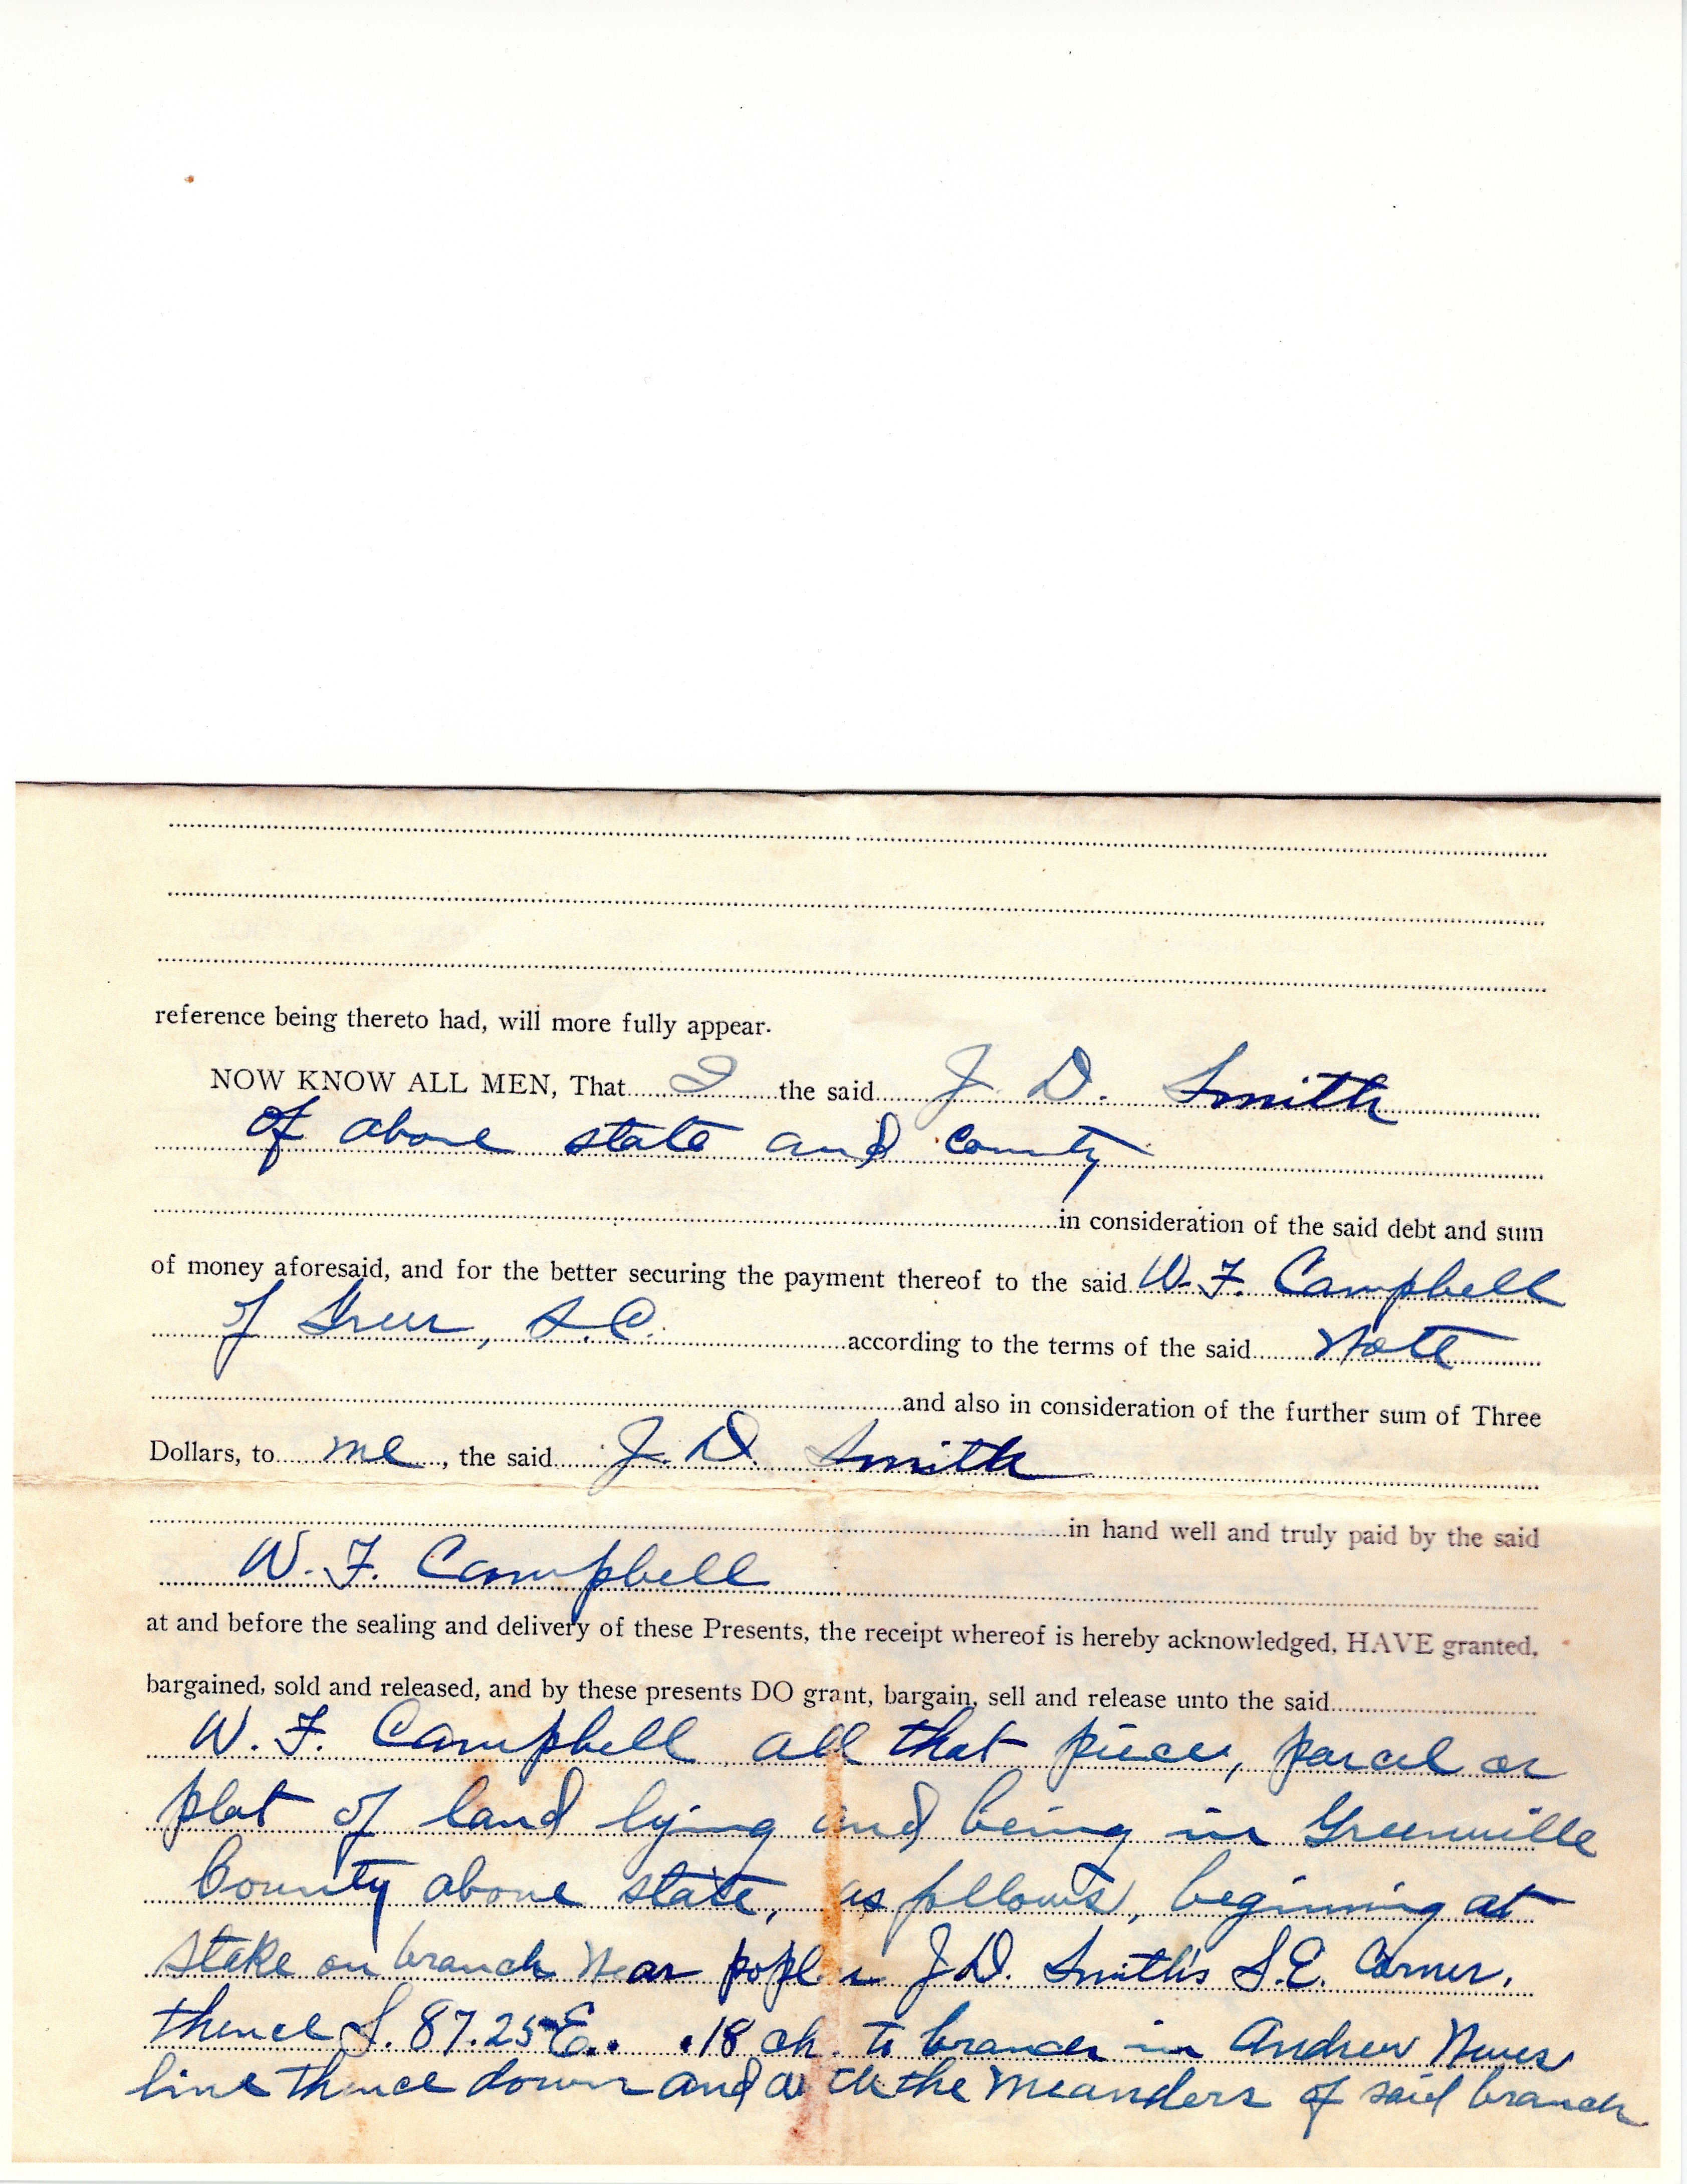 reference being thereto had, will more fully appear.
NOW KNOW ALL MEN, That I the said J. D. Smith
of above state and county
in consideration of the said debt and sum
of money aforesaid, and for the better securing the payment thereof to the said W. F. Campbell
of Greer, S.C. according to the terms of the said note
and also in consideration of the further sum of Three
Dollars, to me, the said J. D. Smith
in hand well and truly paid by the said
W. F. Campbell
at and before the sealing and delivery of these Presents, the receipt whereof is hereby acknowledged, HAVE granted,
bargained, sold and released, and by these presents DO grant, bargain, sell and release unto the said
W. F. Campbell all that piece, parcel or
plat of land lying and being in Greenville
County above state, as follows, beginning at
stake on branch near J.D. Smith's S.E. Corner,
thence S. 87.25 E. .18 ch. to branch in Andrew
line thence down and with the meanders of said branch